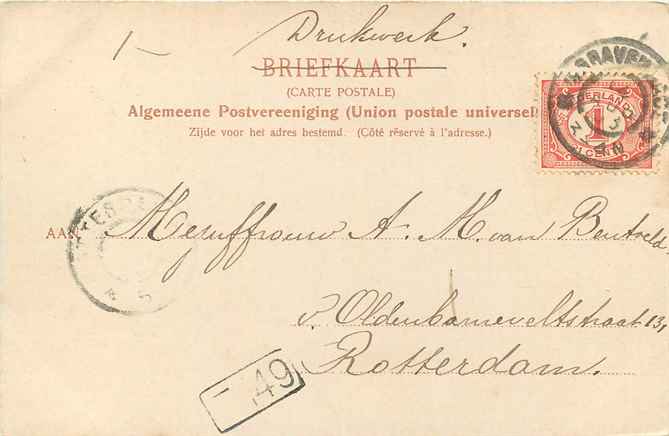 1-
Drukwerk.
BRIEFKAART
(CARTE POSTALE)
Algemeene Postvereeniging (Union postale universel
Zijde voor het adres bestemd. (Côté réservé à l'adresse.)
NEDERLAND
1
CENT
AAN Mejuffrouw A. M. van
v. Oldenbarneveltstraat 13,
Rotterdam.
- 49